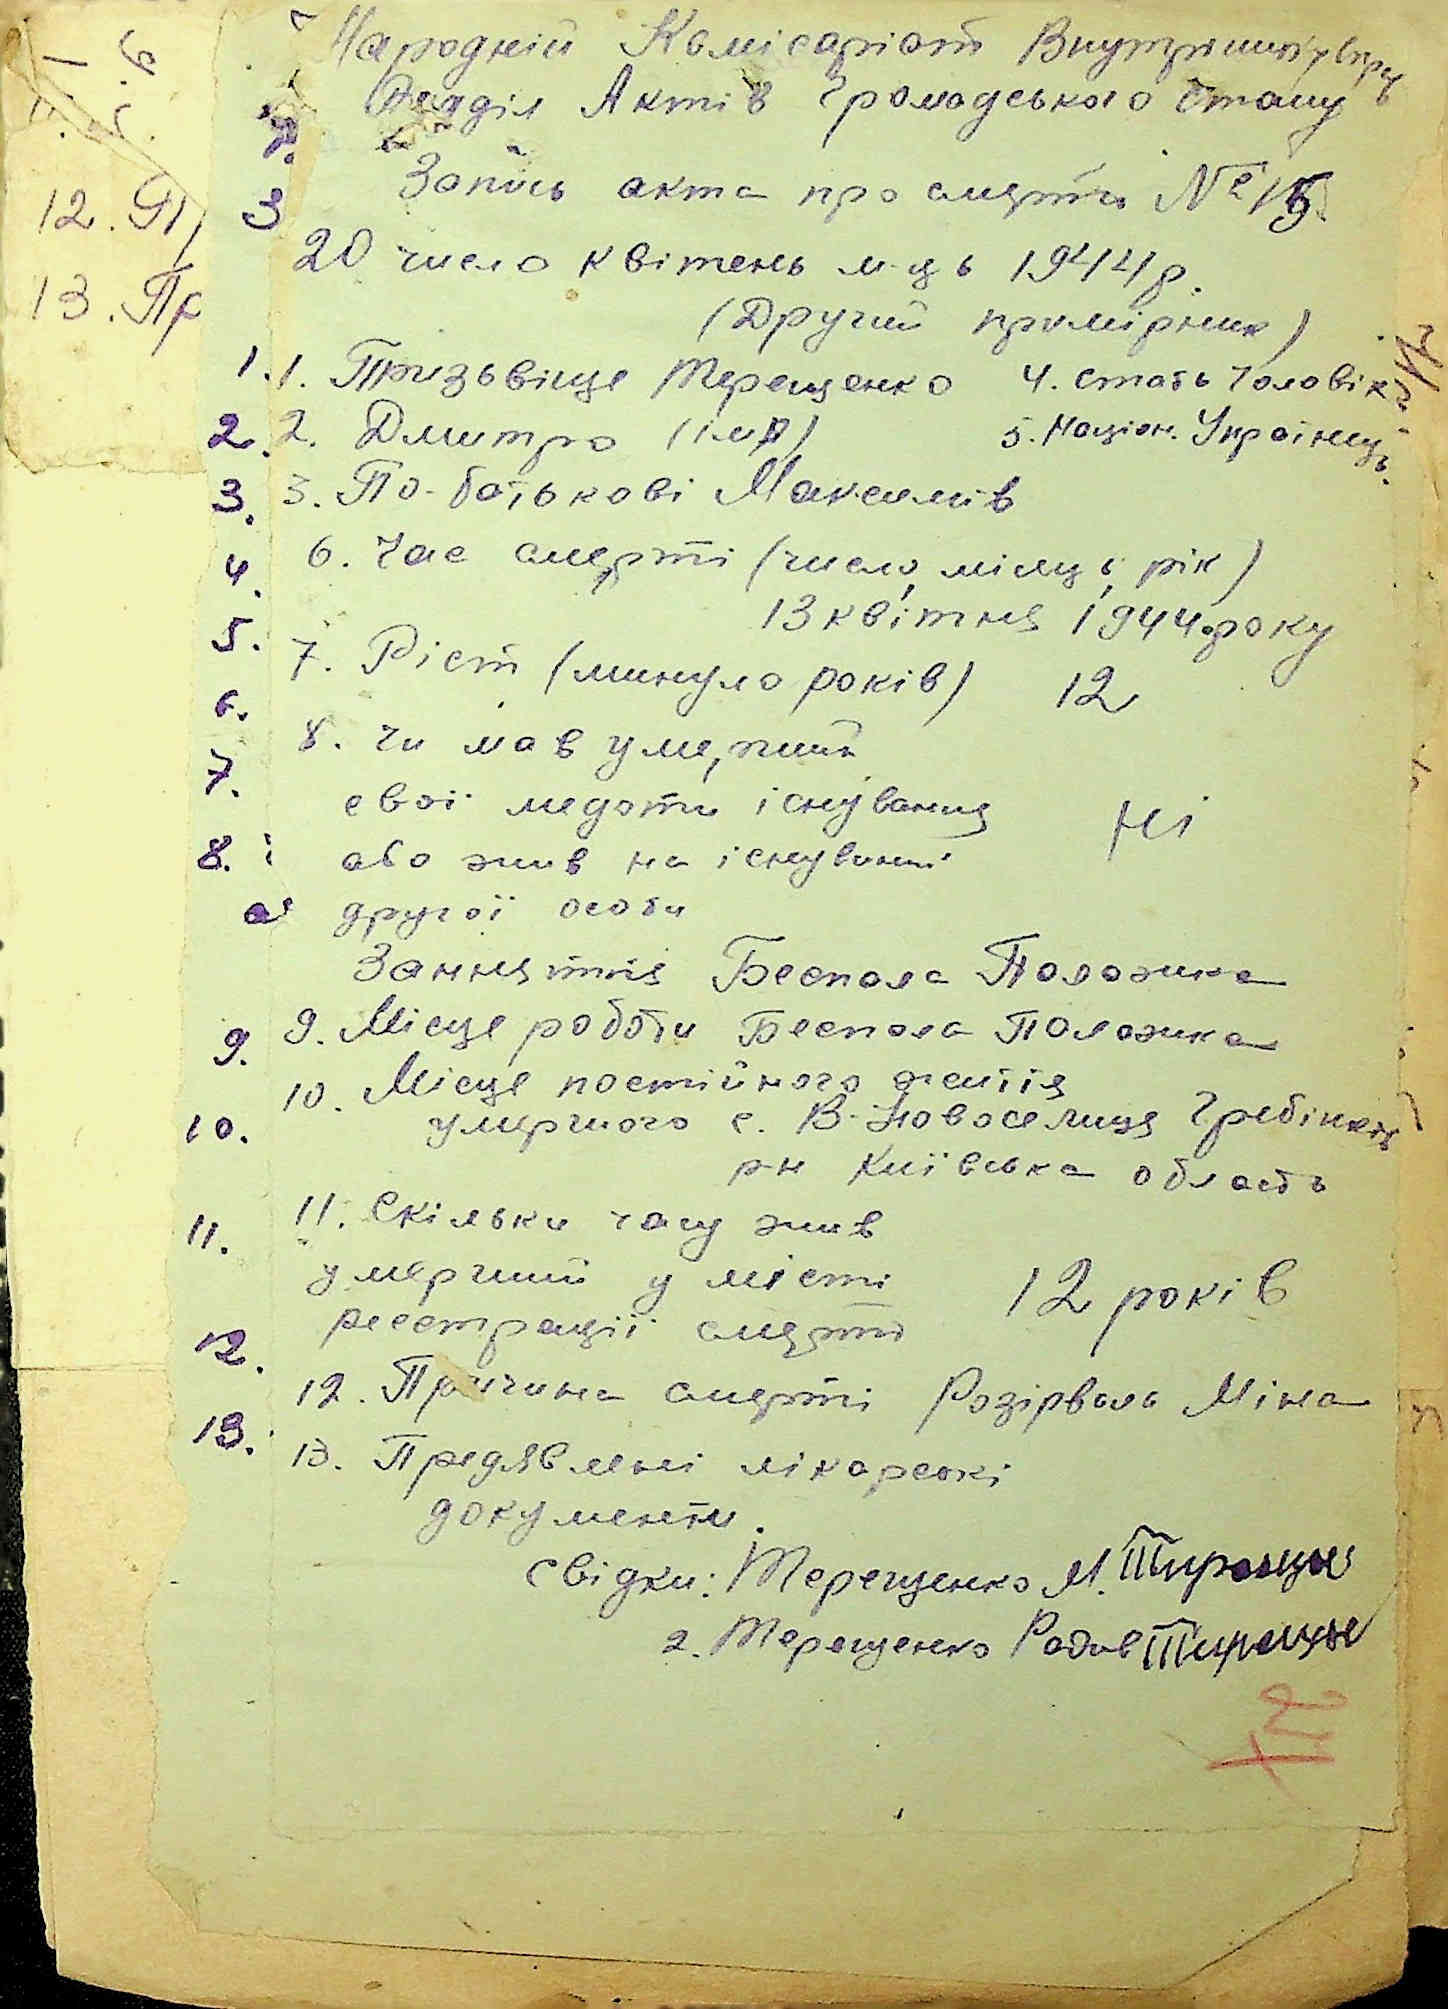 Народній Комісаріат Внутрішніх справ
Відділ Актів Громадського Стану
Запись акта про смерть №
20 число квітень м-ць 1944 р.
(Другий примірник)
1. Призьвіще Терещенко 4. стать Чоловік
2. Дмитро (імя) 5. Націон. Українець
3. По-батькові Максимів
6. Час смерті (число, місяць, рік)
13 квітня 1944 року
7. Ріст (минуло років) 12
8. Чи мав умерший
свої медоти існування Ні
або жив на існуванні
другої особи
Занняттія Беспола Положика
9. Місце роботи Беспола Положика
10. Місце постійного життя
умершого с. В-Новоселиця Гребінків
р-н Київська область
11. Скільки часу жив
умерший у місті 12 років
реєстрації смерті
12. Причина смерті Розірвала Міна
13. Предявлені лікарскі
документи.
Свідки: Терещенко М.
2. Терещенко
12. П
13. Пр
1.
2.
3.
4.
5.
6.
7.
8.
9.
10.
11.
12.
13.